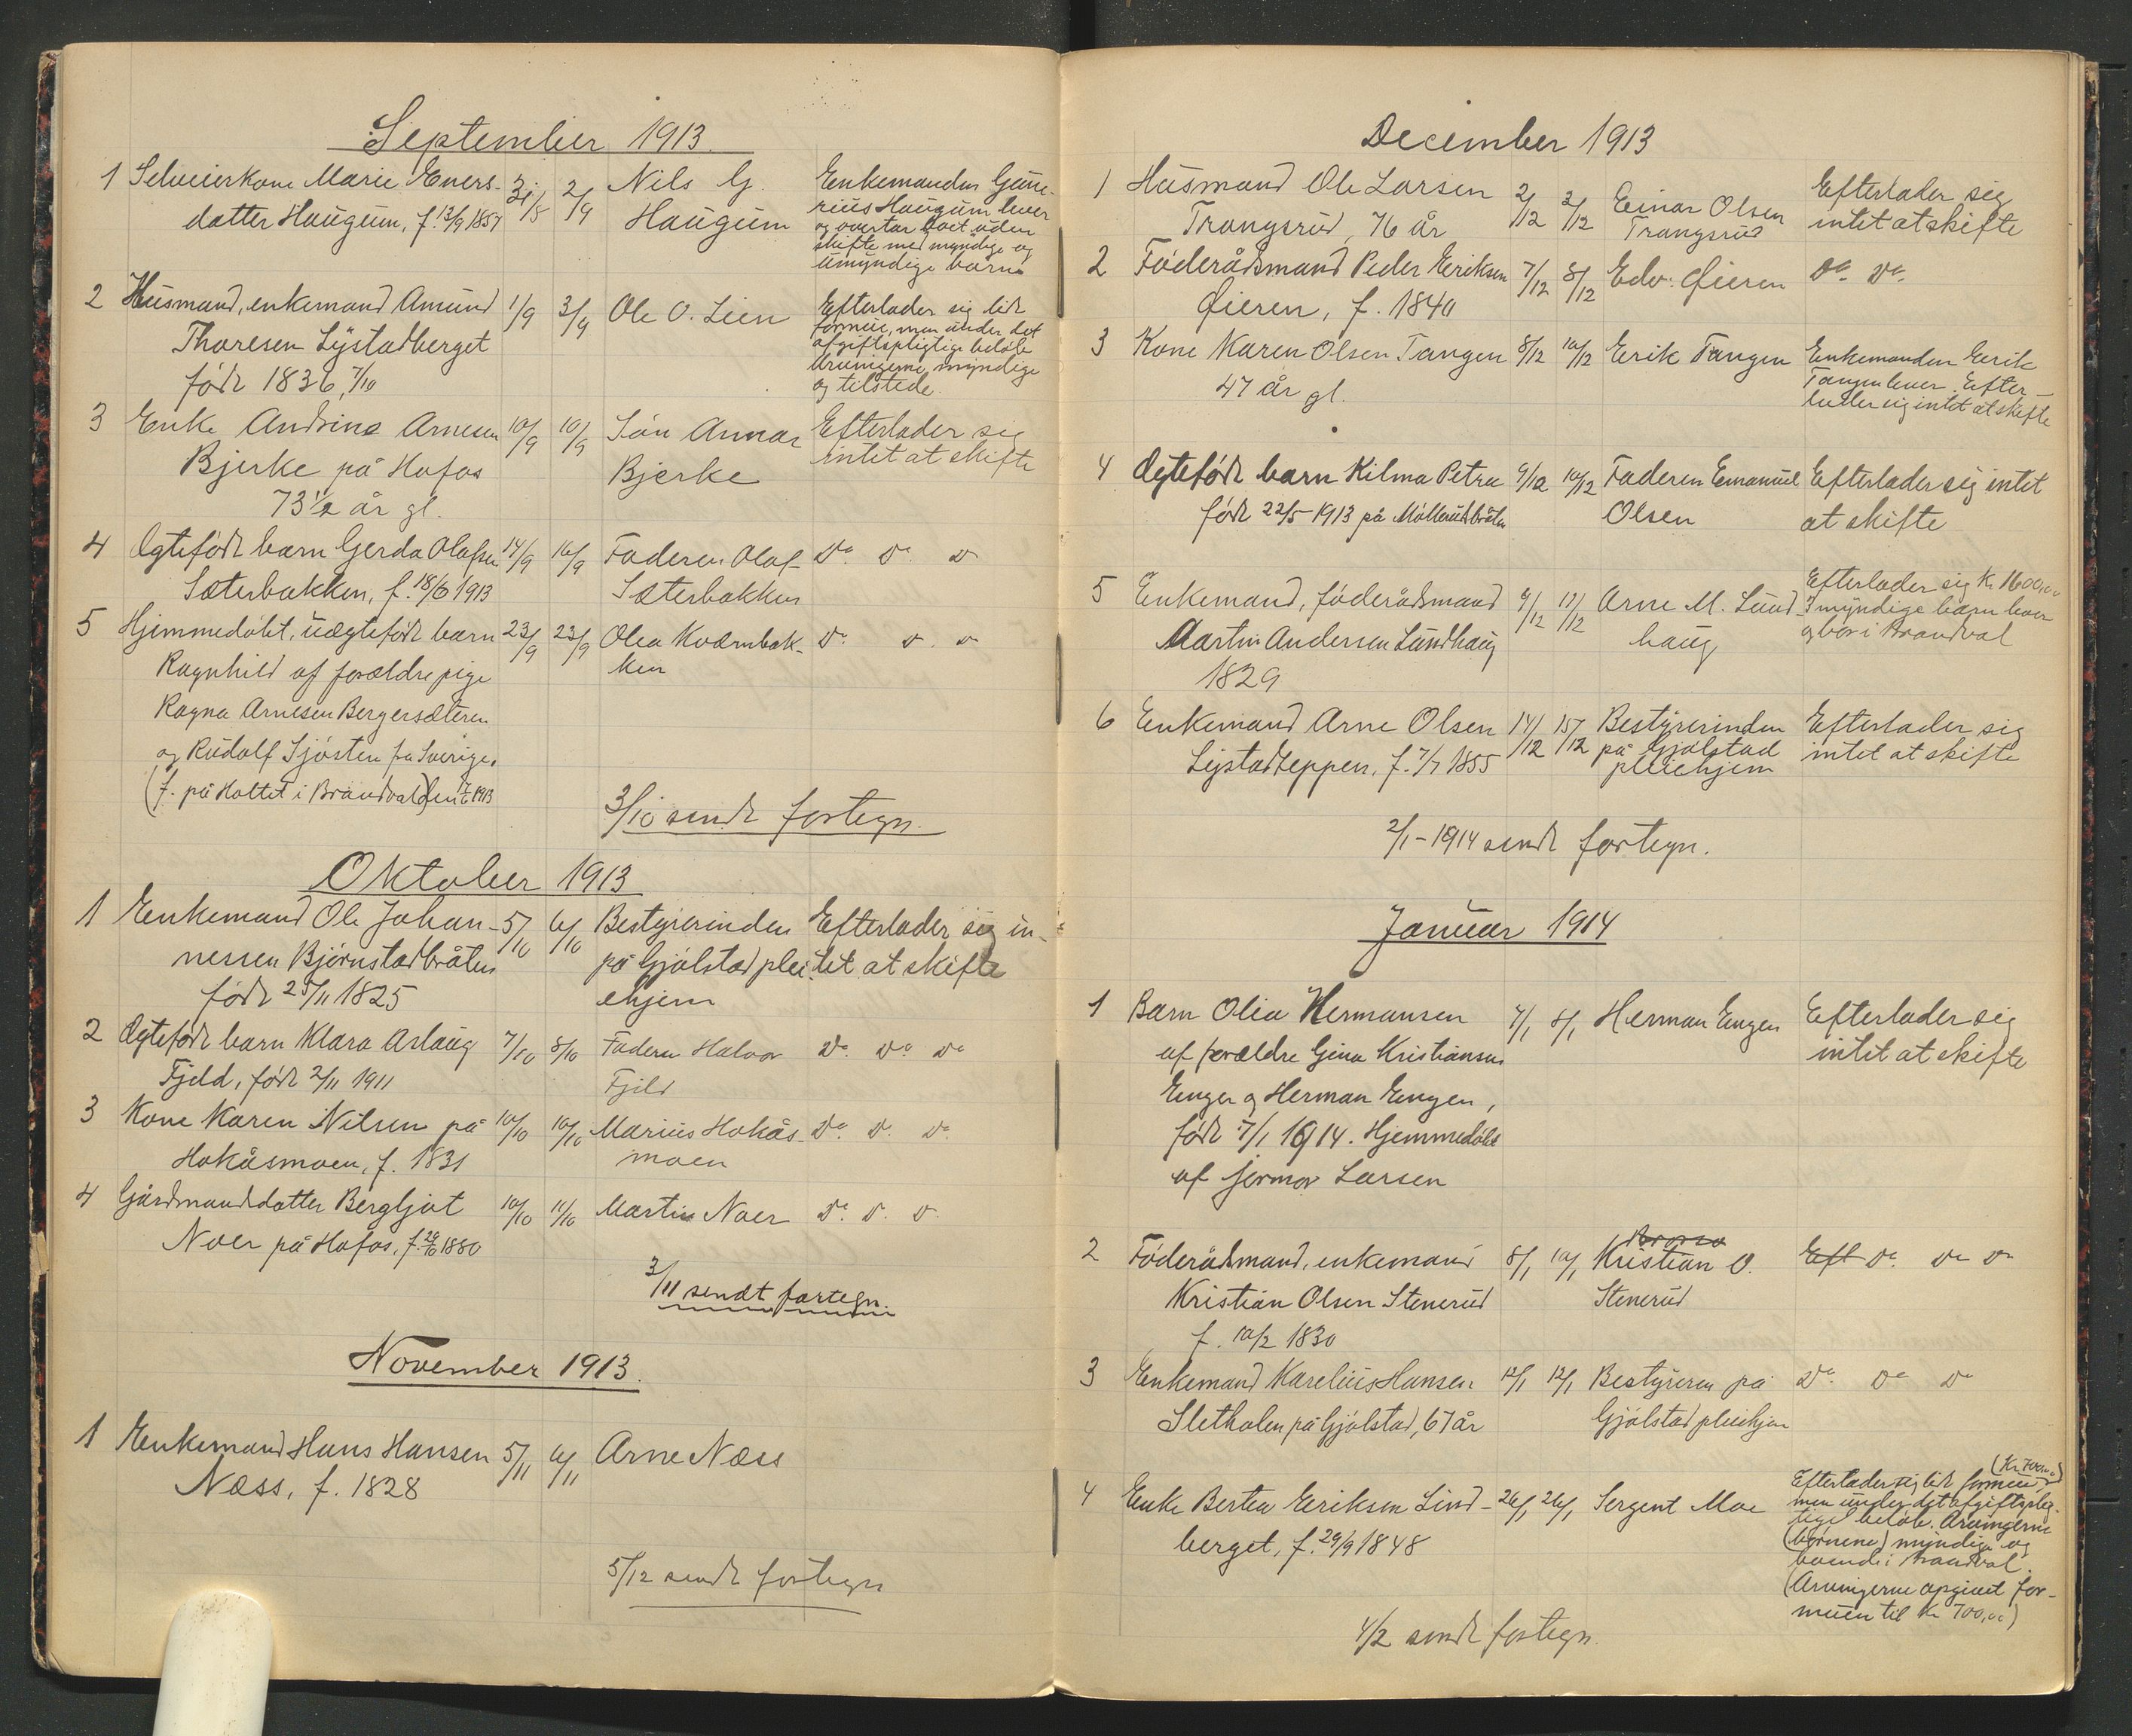 September 1913.
1 Selveierkone Marie Eners- 31/8 2/9 Nils G. Enkemanden Gune-
datter Haugum, f. 13/9 1857 Haugum rius Haugum lever
og overtar boet uden
skifte med myndige og
umyndige barn
2 Husmand, enkemand Amund 1/9 3/9 Ole O. Lien Efterlader sig lidt
Thoresen Lystadberget formue, men under det
født 1836, 7/10 afgiftspligtige beløb
Arvingerne myndige
og tilstede.
3 Enke Andrine Arnesen 10/9 10/9 Søn Annar Efterlader sig
Bjerke på Hofos Bjerke intet at skifte
73 1/2 år gl.
4 Ægtefødt barn Gerda Olafsen 14/9 16/9 Faderen Olaf Do. Do. Do
Sæterbakken, f. 18/6 1913 Sæterbakken
5 Hjemmedøbt, uægtefødt barn 23/9 23/9 Olea Kværnbak- Do. Do. Do
Ragnhild af forældre pige ken
Ragna Arnesen Bergersæteren
og Rudolf Sjøsten fra Sverige.
(f. på Holtet i Brandval) den 1913
3/10 sendt fortegn.
Oktober 1913
1 Enkemand Ole Johan- 5/10 6/10 Bestyrerinden Efterlader sig in-
nessen Bjørnstadbråten på Gjølstad plei- tet at skifte
født 25/11 1825 ehjem
2 Ægtefødt barn Klara Aslaug 7/10 8/10 Faderen Halvor Do. Do. Do
Fjeld, født 2/11 1911 Fjeld
3 Kone Karen Nilsen på 10/10 10/10 Marius Hokås- Do. Do. Do.
Hokåsmoen, f. 1831 moen
4 Gårdmanddatter Bergljot 10/10 11/10 Martin Noer Do. Do. Do.
Noer på Hofos, f. 1880
3/11 sendt fortegn.
November 1913.
1 Enkemand Hans Hansen 5/11 6/11 Arne Næss
Næss, f. 1828
5/12 sendt fortegn
December 1913
1 Husmand Ole Larsen 2/12 3/12 Einar Olsen Efterlader sig
Trangsrud, 76 år Trangsrud intet at skifte
2 Føderådsmand Peder Eriksen 7/12 8/12 Edv. Øieren Do. Do.
Øieren, f. 1840
3 Kone Karen Olsen Tangen 8/12 10/12 Erik Tangen Enkemanden Erik
47 år gl. Tangen lever. Efter-
lader sig intet at skifte
4 Ægtefødt barn Hilma Petra 9/12 10/12 Faderen Emanuel Efterlader sig intet
født 22/5 1913 på Møllerudsbråten Olsen at skifte
5 Enkemand, føderådsmand 9/12 11/12 Arne M. Lund- Efterlader sig Kr 1600,00
Martin Andersen Lundhaug haug 3 myndige barn lever
1829 og bor i Brandval
6 Enkemand Arne Olsen 14/12 15/12 Bestyrerinden Efterlader sig
Lystadteppen, f. 7/7 1855 på Gjølstad intet at skifte
pleiehjem
2/1-1914 sendt fortegn.
Januar 1914
1 Barn Olea Hermansen 7/1 8/1 Herman Engen Efterlader sig
af forældre Gina Kristiansen intet at skifte
Engen og Herman Engen,
født 7/1 1914. Hjemmedøbt
af jormor Larsen
2 Føderådsmand, enkemand 8/1 10/1 Kristian O. Eft Do. Do Do
Kristian Olsen Stenerud Stenerud
f. 10/2 1830
3 Enkemand Karelius Hansen 12/1 12/1 Bestyreren på Do. Do Do
Sletholen på Gjølstad, 67 år Gjølstad pleiehjem
4 Enke Bertea Eriksen Lind- 26/1 26/1 Sergent Moe Efterlader sig lidt formue (Kr 700,00)
berget, f. 29/9 1848 men under det afgiftsplig-
tige beløb. Arvingerne
(børnene) myndige og
boende i Brandval.
(Arvingerne opgivet for-
muen til Kr 700,00)
4/2 sendt fortegn.